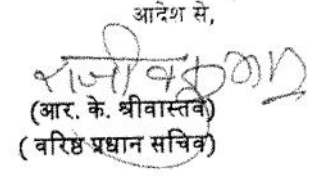 आदेश से,
(आर. के. श्रीवास्तवे)
( वरिष्ठ प्रधान सचिव)